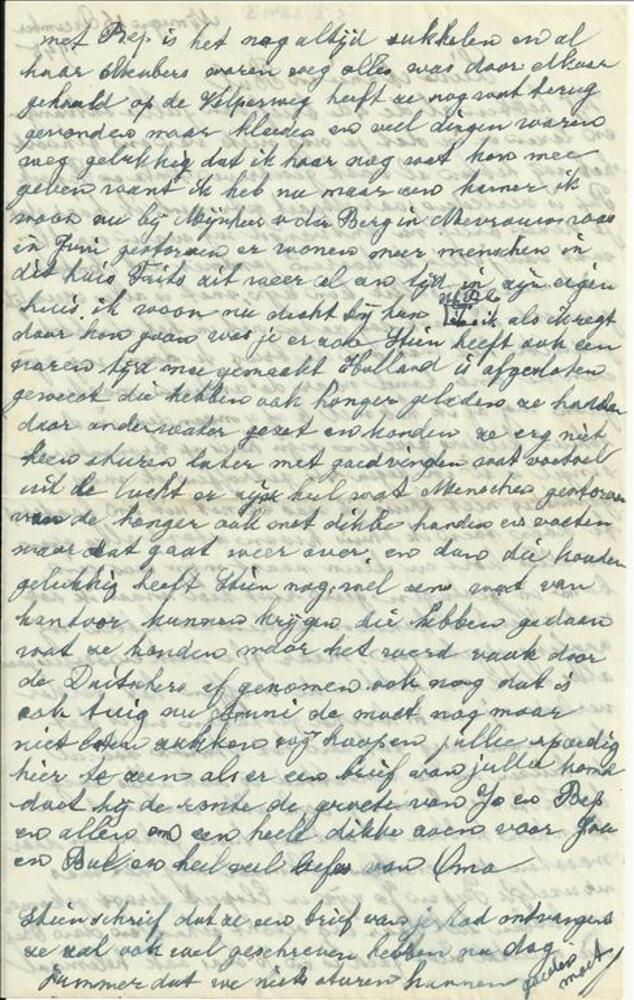 met Bep is het nog altijd sukkelen en al
haar Meubers waren weg alles was door elkaar
gehaald op de Velperweg heeft ze nog wat terug
gevonden maar kleeden en veel dingen waren
weg gelukkig dat ik haar nog wat kon mee
geven want ik heb nu maar een kamer ik
woon nu bij Mijnheer v der Berg in Mevrouw was
in Juni gestorven er wonen meer menschen in
dit huis Frits zit weer al en tijd in zijn eigen
huis. ik woon nu dicht bij hun ik als ik regt
door kon gaan was je er zoo Stien heeft ook een
naren tijd mee gemaakt Holland is afgesloten
geweest die hebben ook honger geleden ze hadden
daar onderwater gezet en konden ze erg niet
heen sturen later met goedvinden wat voetsel
uit de lucht er zijn heel wat Menschen gestorven
van de honger ook met dikke handen en voeten
maar dat gaat weer over en dan die kouden
gelukkig heeft Stien nog wel eens wat van
kantoor kunnen krijgen die hebben gedaan
wat ze konden maar het werd vaak door
de Duitschers af genomen ook nog dat is
ook tuig nu de moet nog maar
niet laten zakken wij hoopen jullie spoedig
hier te zien als er een brief van jullie komt
doet hij de ronte de groeten van Jo en Bep
en allen en een heele dikke zoen voor Jou
en Bul en heel veel liefs van Oma
Stien schrief dat ze een brief van je had ontvangen
ze zal ook wel geschreven hebben nu dag
Jammer dat we niets sturen kunnen goeden
moet